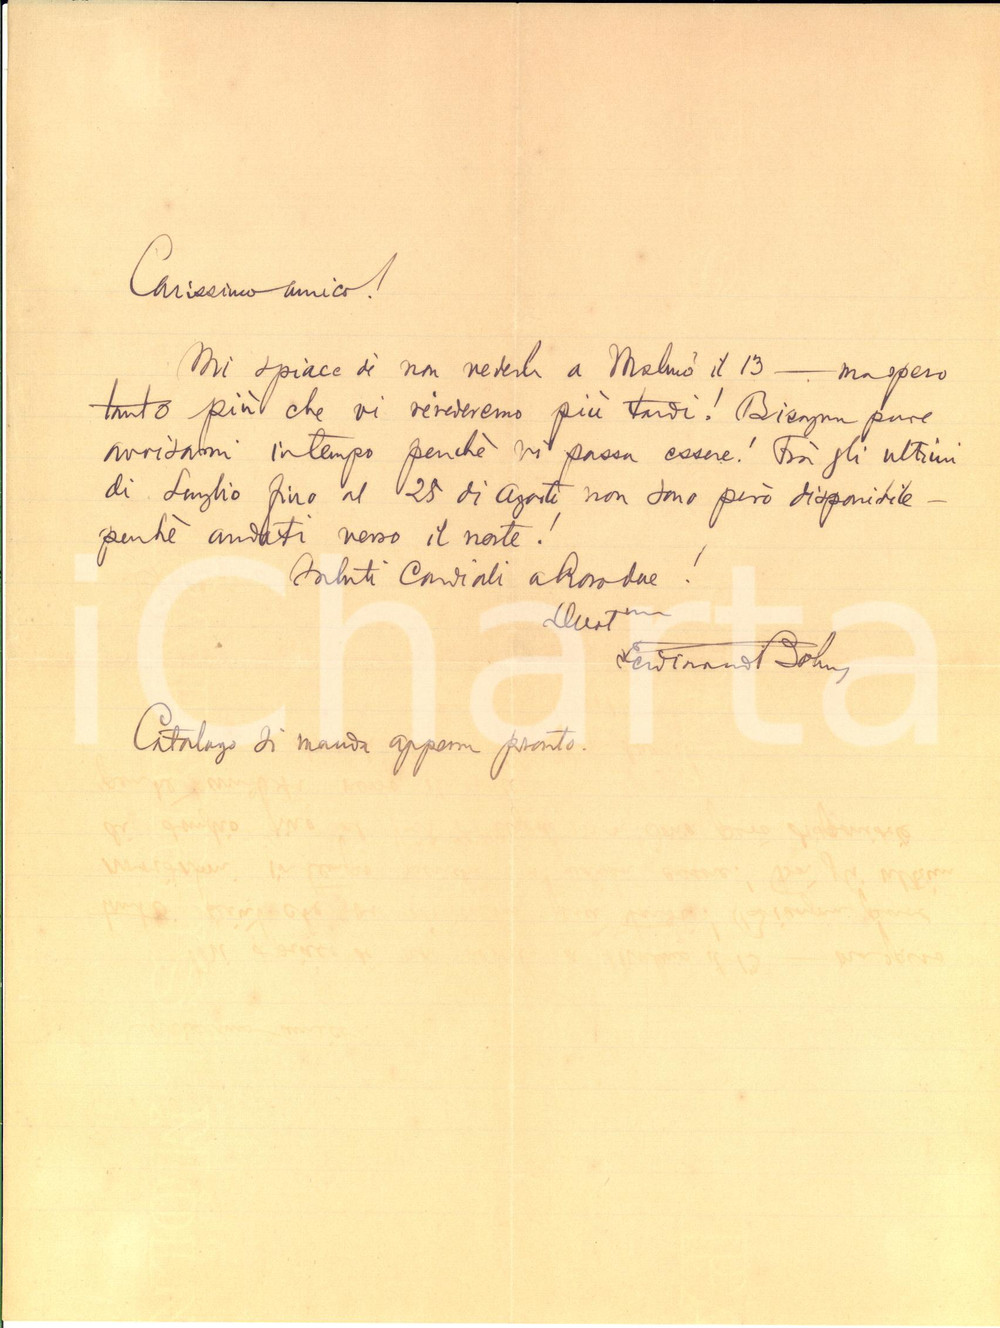 Carissimo amico!
Mi spiace di non vederla a Malmö il 13 — ma spero
tanto più che vi rivederemo più tardi! Bisogna pure
avvisarmi in tempo perchè vi possa essere! Frà gli ultimi
di Luglio fino al 25 di Agosto non sono però disponibile —
perchè andati verso il norte!
Saluti Cordiali a
Ferdinand
Catalogo si manda appena pronto.
iCharta